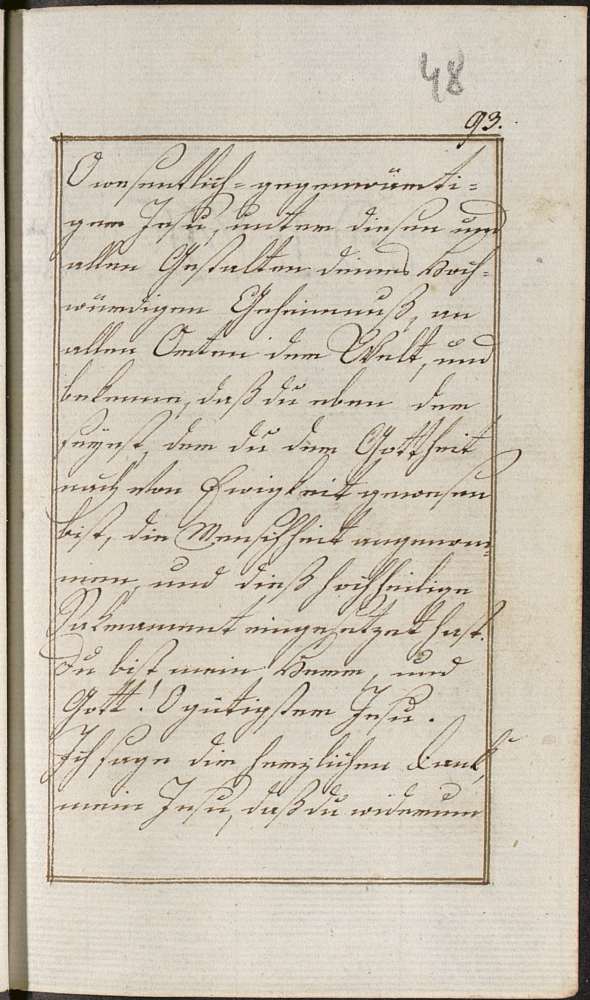 48
93.
O wesentlich-gegenwärti-
ger Jesu, unter diesen und
allen Gestalten deines Hoch-
würdigen Geheimnuß, an
allen Orten der Welt, und
bekenne, daß du eben der
seyest, der du der Gottheit
nach von Ewigkeit gewesen
bist, die Menschheit angenom-
men, und dieß hochheilige
Sakrament eingesetzet hast.
Du bist mein Herr, und
Gott! O gütigster Jesu.
Ich sage dir herzlichen Dank,
mein Jesu, daß du widerum